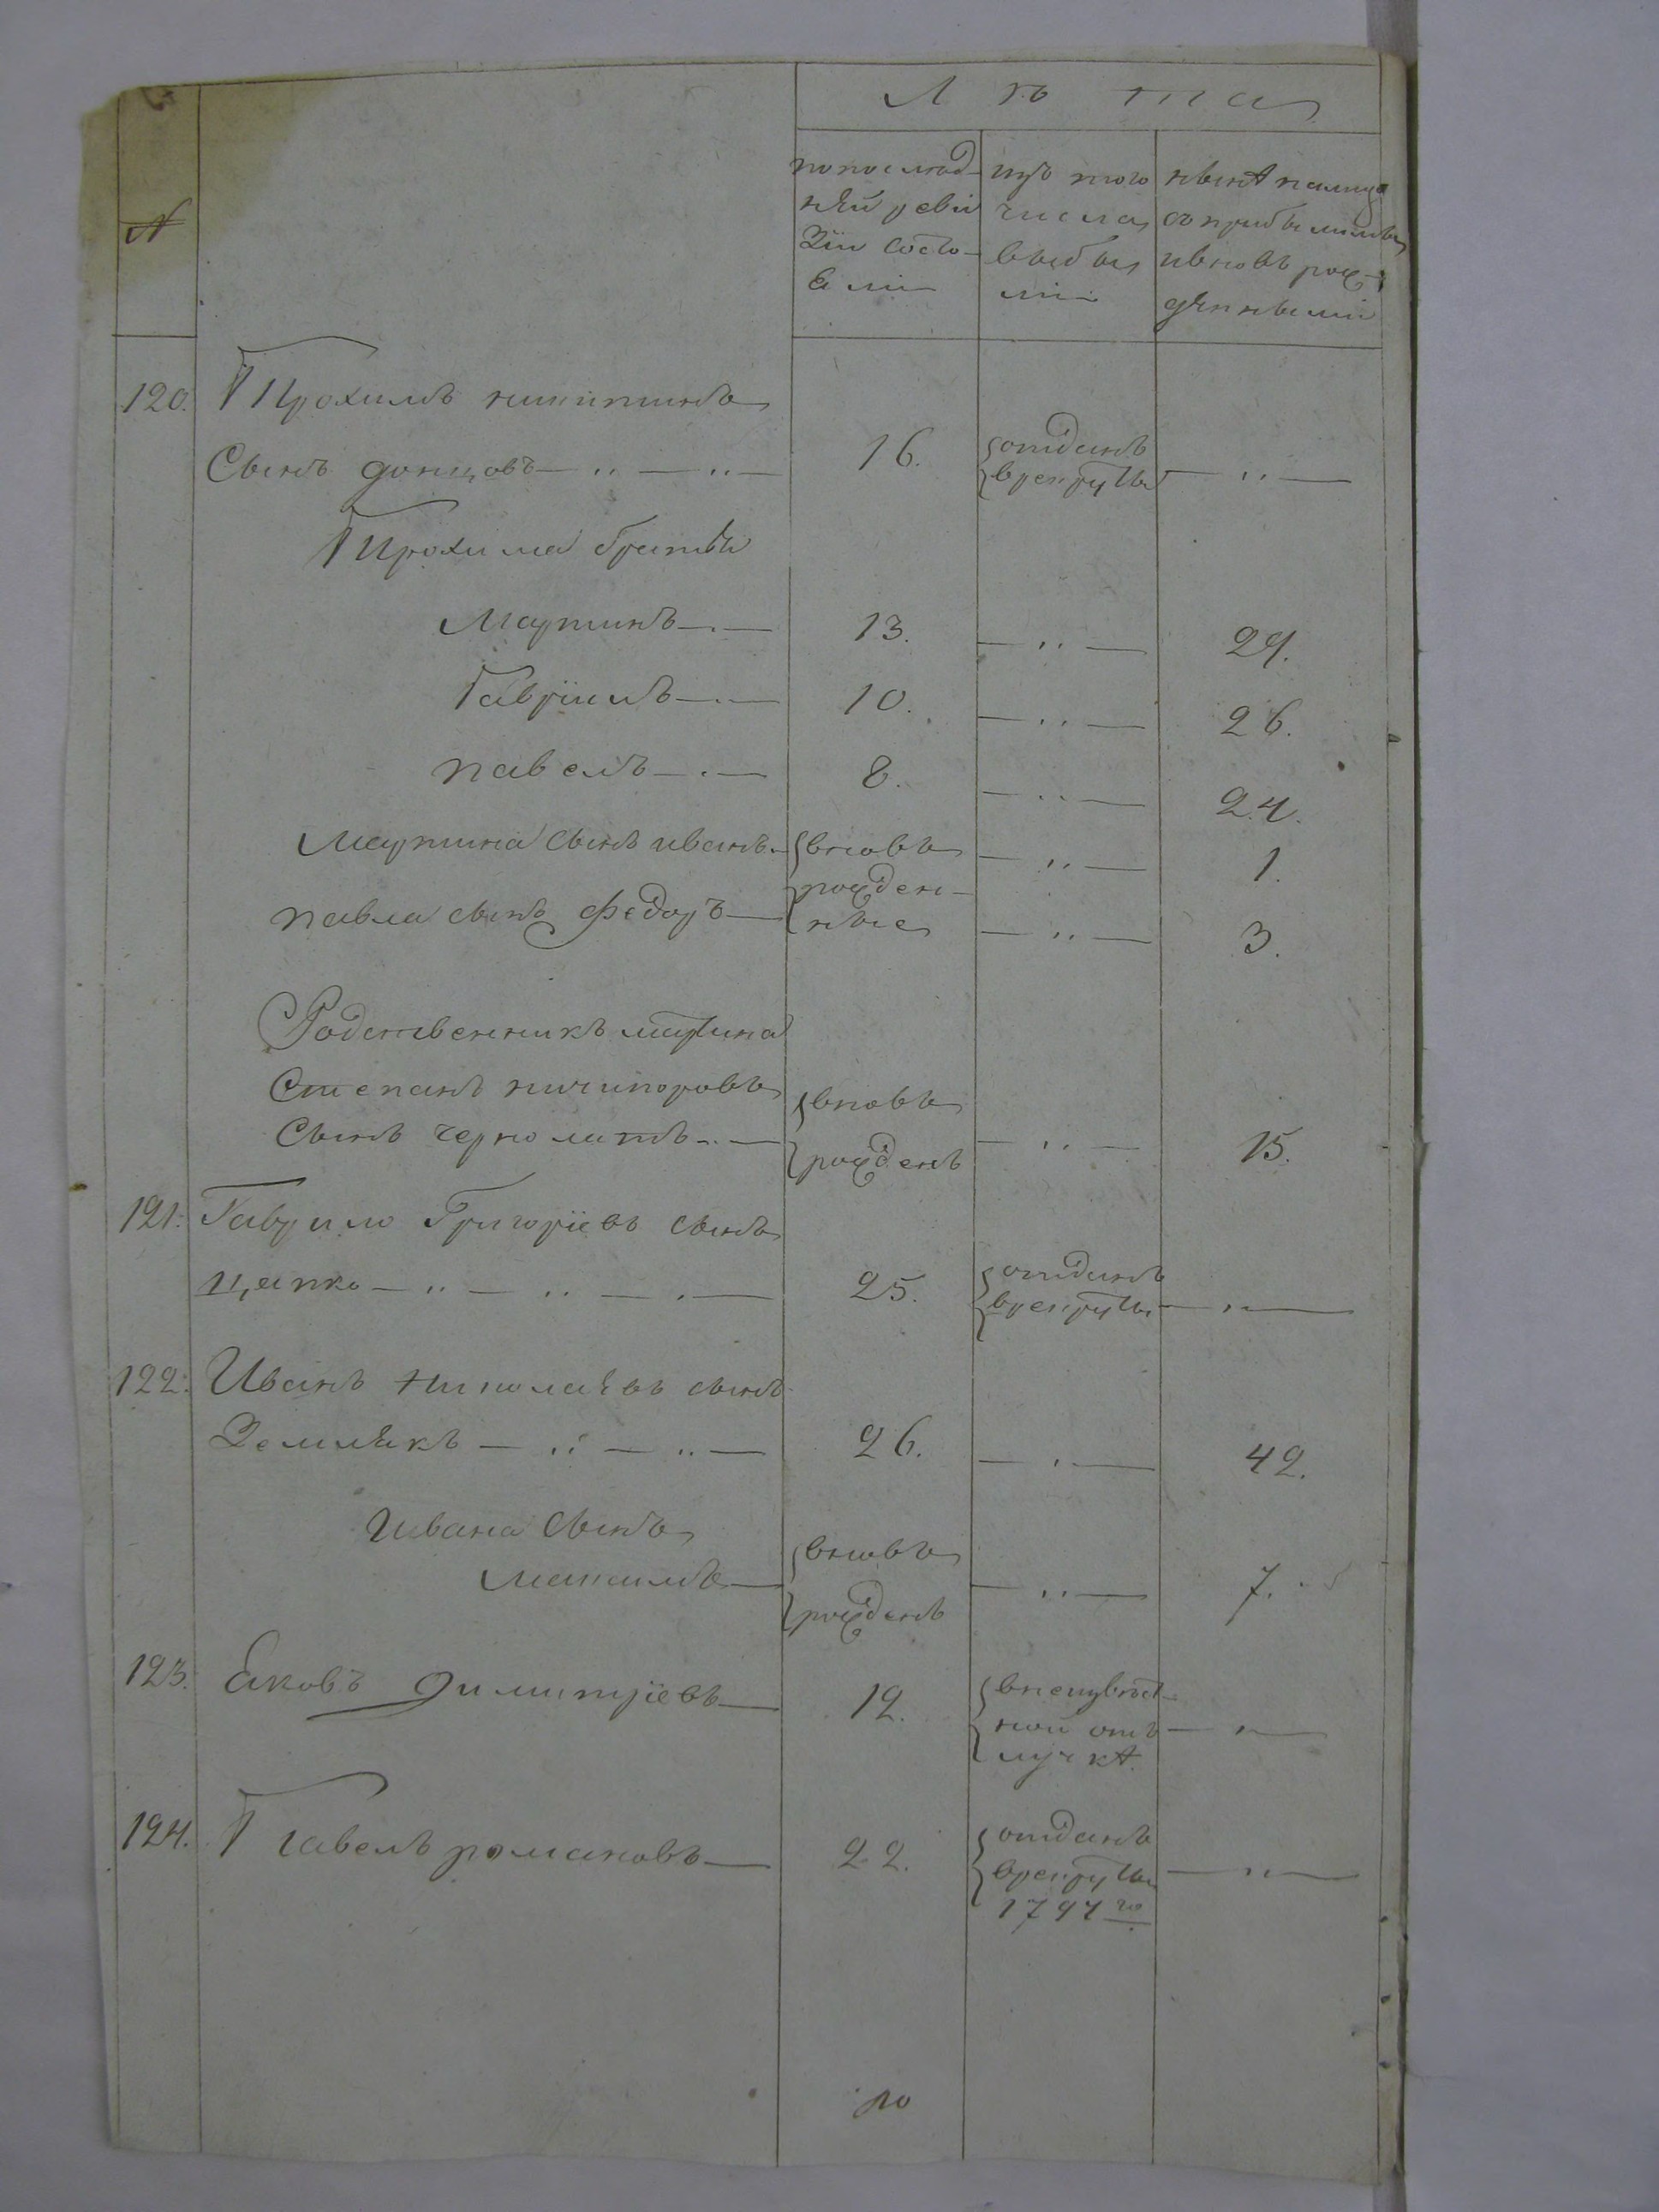 Лѣта
№
попослѣд-
нѣй реви
зіи состо-
яли
изъ того
числа
выбы
ли
нынѣ налицо
съ прибылыми
ивновь рож-
дѣнными
120. Прохимъ никитинъ
Сынъ донцовъ 16. отданъ
врекруты
Прохима братьи
Мартинъ 13. 29.
Гавріилъ 10. 26.
павелъ 8. 24.
Мартина сынъ иванъ вновь 1.
рожден-
павла сынъ Федоръ ные 3.
Родственникъ мартина
Степанъ ничипоровъ вновь
Сынъ черно рожденъ 15.
121. Гаврило Григоріевъ сынъ
цапко 25. отданъ
врекруты
122. Иванъ Николаѣвъ сынъ
Землякъ 26. 42.
Ивана Сынъ вновь
рожденъ 7.
123. Яковъ Димитріевъ 12. внеизвѣст-
ной отъ
лучкѣ.
124. Павелъ романовъ 22. отданъ
врекруты
1797 го